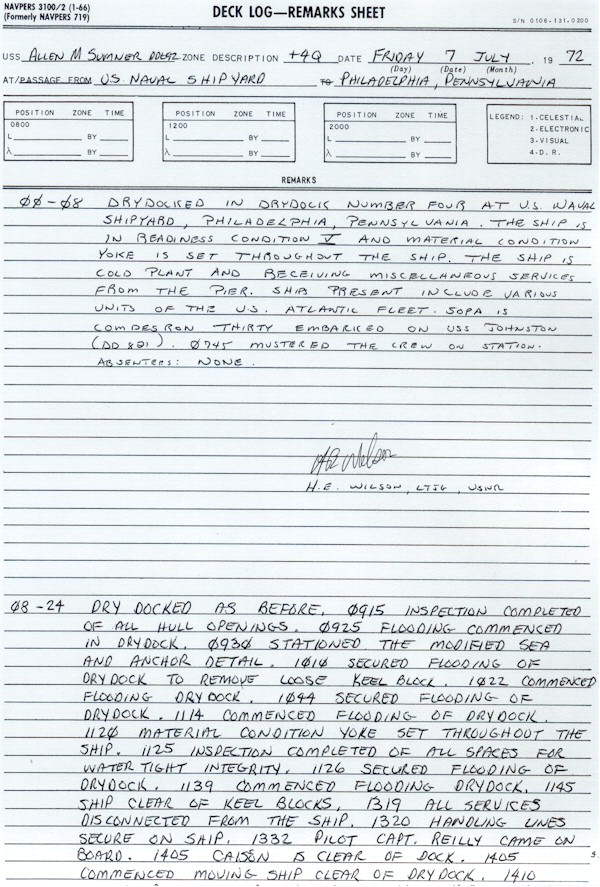 NAVPERS 3100/2 (1-66)
(Formerly NAVPERS 719)
DECK LOG—REMARKS SHEET
S/N 0106-131-0200
USS ALLEN M SUMNER DD692 ZONE DESCRIPTION +4Q DATE FRIDAY 7 JULY, 19 72
(Day) (Date) (Month)
AT/PASSAGE FROM U.S. NAVAL SHIPYARD TO PHILADELPHIA, PENNSYLVANIA
POSITION ZONE TIME
0800
L BY
λ BY
POSITION ZONE TIME
1200
L BY
λ BY
POSITION ZONE TIME
2000
L BY
λ BY
LEGEND: 1. CELESTIAL
2. ELECTRONIC
3. VISUAL
4. D. R.
REMARKS
00-08 DRYDOCKED IN DRYDOCK NUMBER FOUR AT U.S. NAVAL
SHIPYARD, PHILADELPHIA, PENNSYLVANIA. THE SHIP IS
IN READINESS CONDITION V AND MATERIAL CONDITION
YOKE IS SET THROUGHOUT THE SHIP. THE SHIP IS
COLD PLANT AND RECEIVING MISCELLANEOUS SERVICES
FROM THE PIER. SHIPS PRESENT INCLUDE VARIOUS
UNITS OF THE U.S. ATLANTIC FLEET. SOPA IS
COMDESRON THIRTY EMBARKED ON USS JOHNSTON
(DD 821). 0745 MUSTERED THE CREW ON STATION.
ABSENTEES: NONE.
HE Wilson
H.E. WILSON, LTJG, USNR
08-24 DRY DOCKED AS BEFORE. 0915 INSPECTION COMPLETED
OF ALL HULL OPENINGS. 0925 FLOODING COMMENCED
IN DRYDOCK. 0930 STATIONED THE MODIFIED SEA
AND ANCHOR DETAIL. 1010 SECURED FLOODING OF
DRYDOCK TO REMOVE LOOSE KEEL BLOCK. 1022 COMMENCED
FLOODING DRYDOCK. 1044 SECURED FLOODING OF
DRYDOCK. 1114 COMMENCED FLOODING OF DRYDOCK.
1120 MATERIAL CONDITION YOKE SET THROUGHOUT THE
SHIP. 1125 INSPECTION COMPLETED OF ALL SPACES FOR
WATER TIGHT INTEGRITY. 1126 SECURED FLOODING OF
DRYDOCK. 1139 COMMENCED FLOODING DRYDOCK. 1145
SHIP CLEAR OF KEEL BLOCKS. 1319 ALL SERVICES
DISCONNECTED FROM THE SHIP. 1320 HANDLING LINES
SECURE ON SHIP. 1332 PILOT CAPT. REILLY CAME ON
BOARD. 1405 CAISON IS CLEAR OF DOCK. 1405
COMMENCED MOVING SHIP CLEAR OF DRYDOCK. 1410